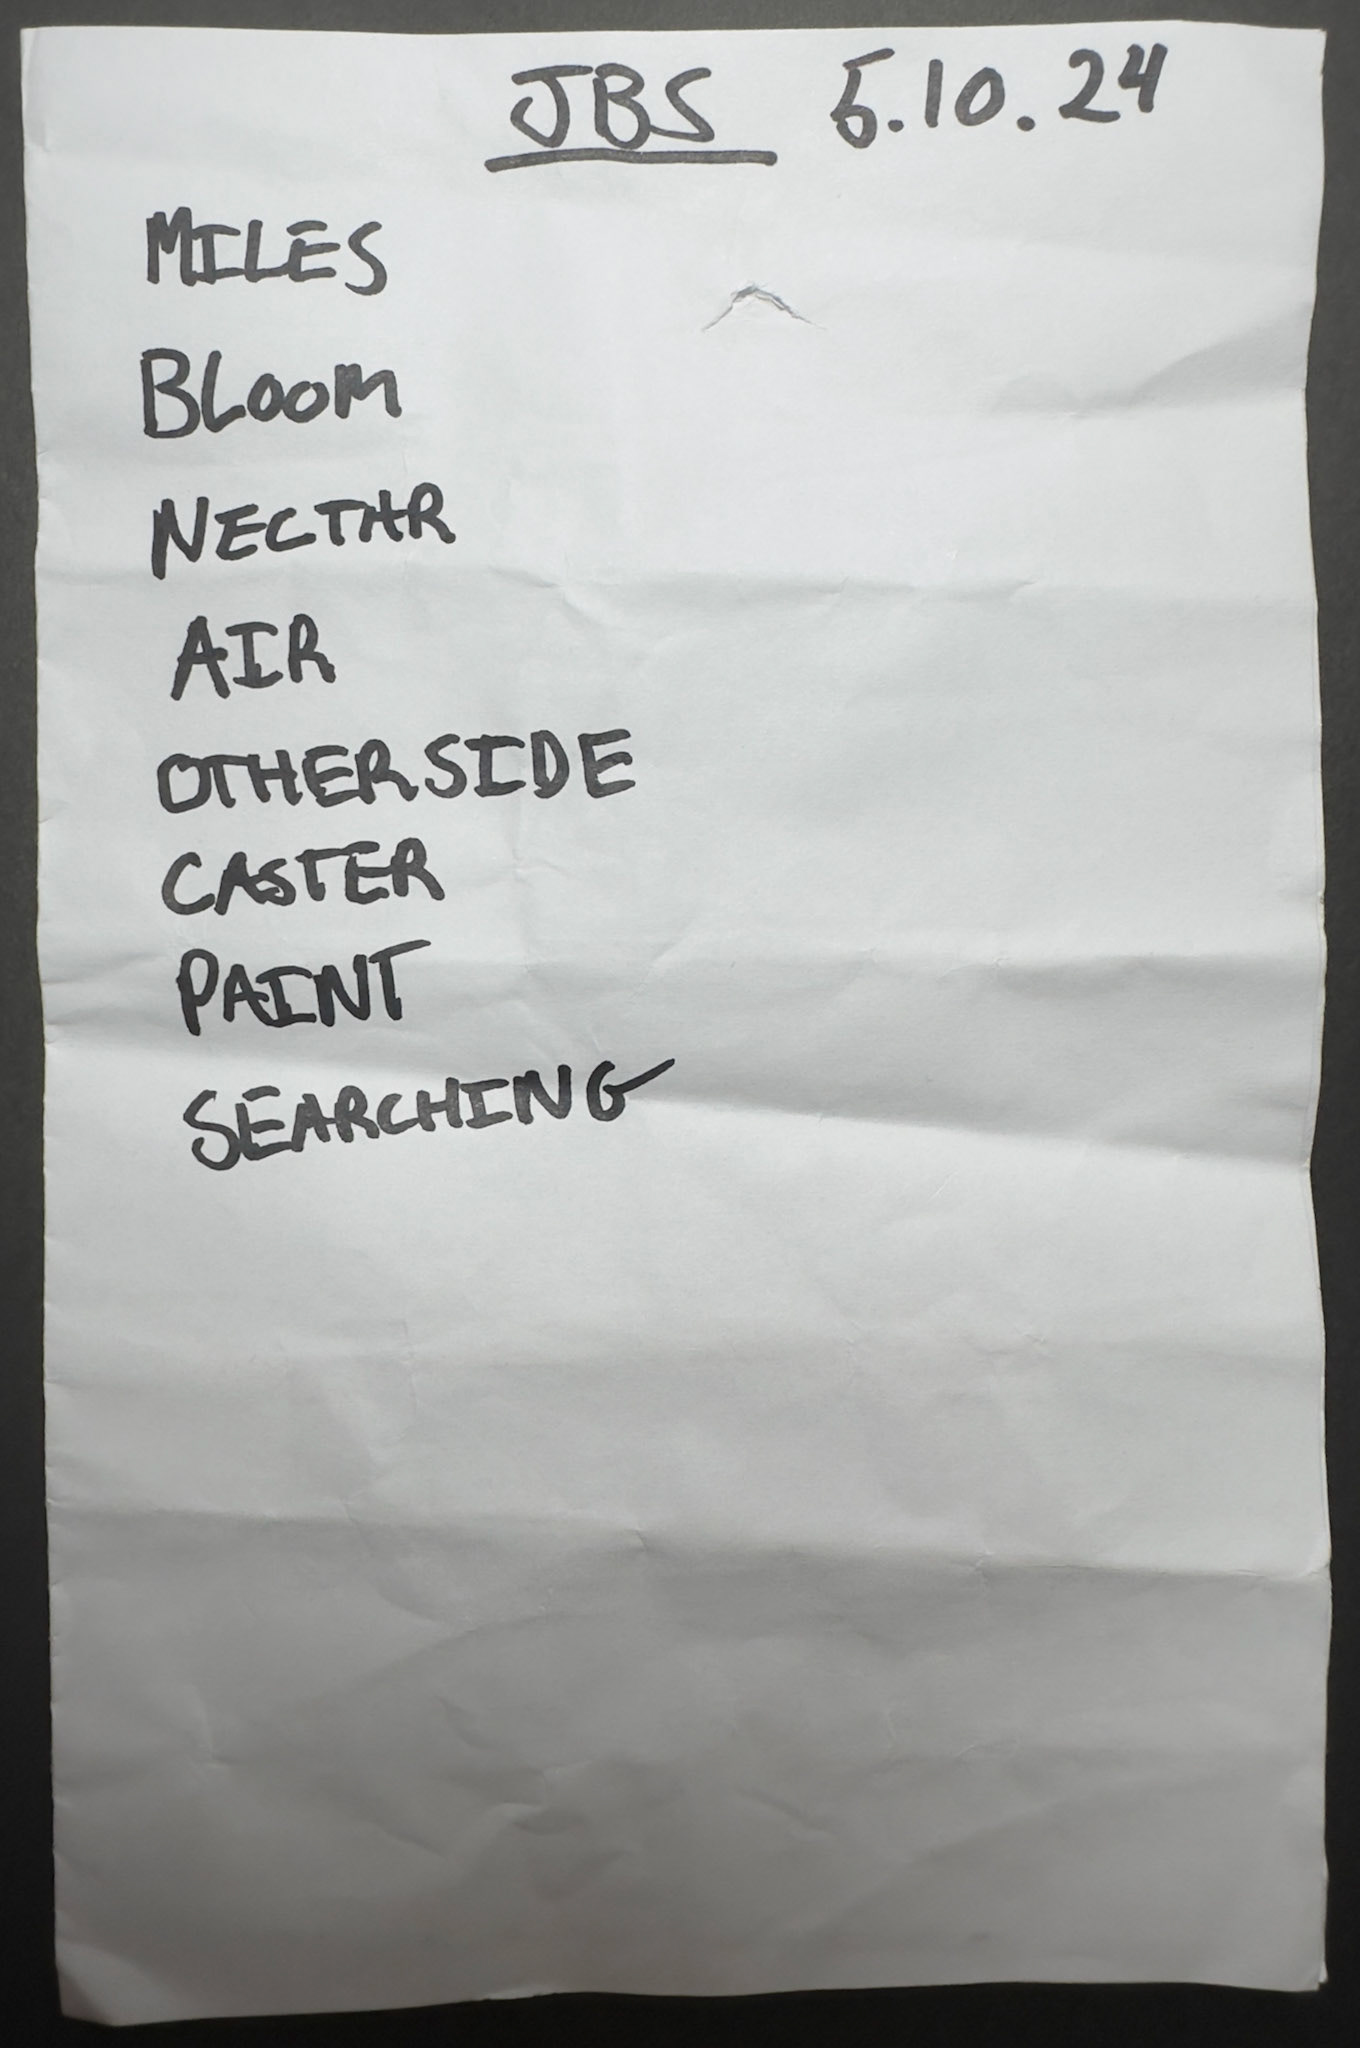 JBS 5.10.24
MILES
BLOOM
NECTAR
AIR
OTHERSIDE
CASTER
PAINT
SEARCHING